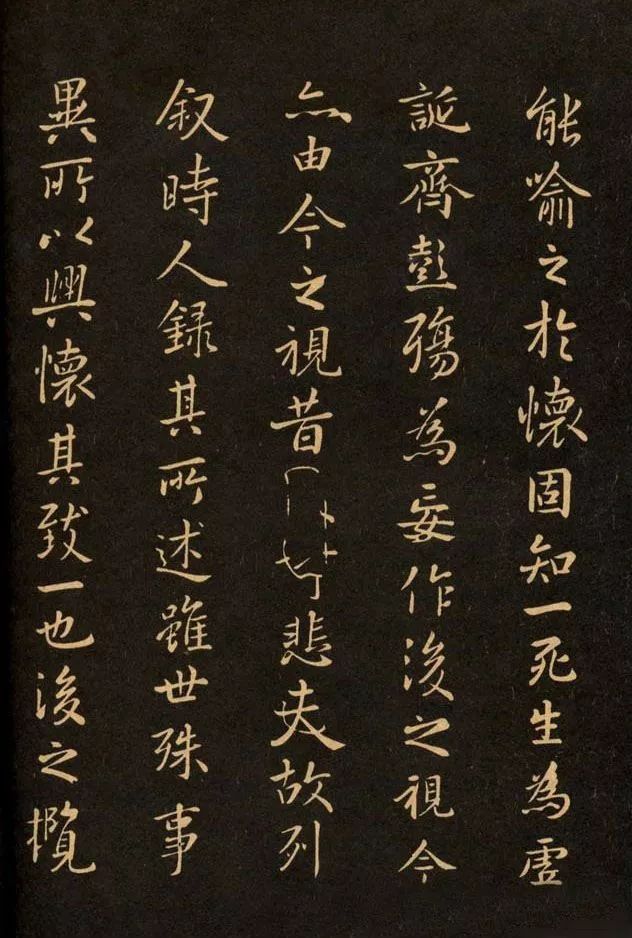 能喻之於懷固知一死生為虛
誕齊彭殤為妄作後之視今
亦由今之視昔悲夫故列
叙時人錄其所述雖世殊事
異所以興懷其致一也後之攬